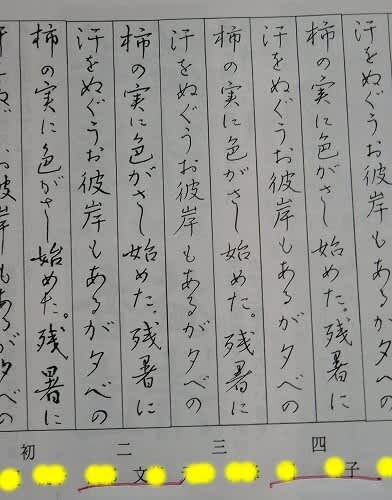 汗をぬぐうお彼岸もあるが夕べの
柿の実に色がさし始めた。残暑に
汗をぬぐうお彼岸もあるが夕べの
柿の実に色がさし始めた。残暑に
汗をぬぐうお彼岸もあるが夕べの
柿の実に色がさし始めた。残暑に
汗をぬぐうお彼岸もあるが夕べの
柿の実に色がさし始めた。残暑に
お彼岸もあるが夕べの
四
子
三
二
文
初